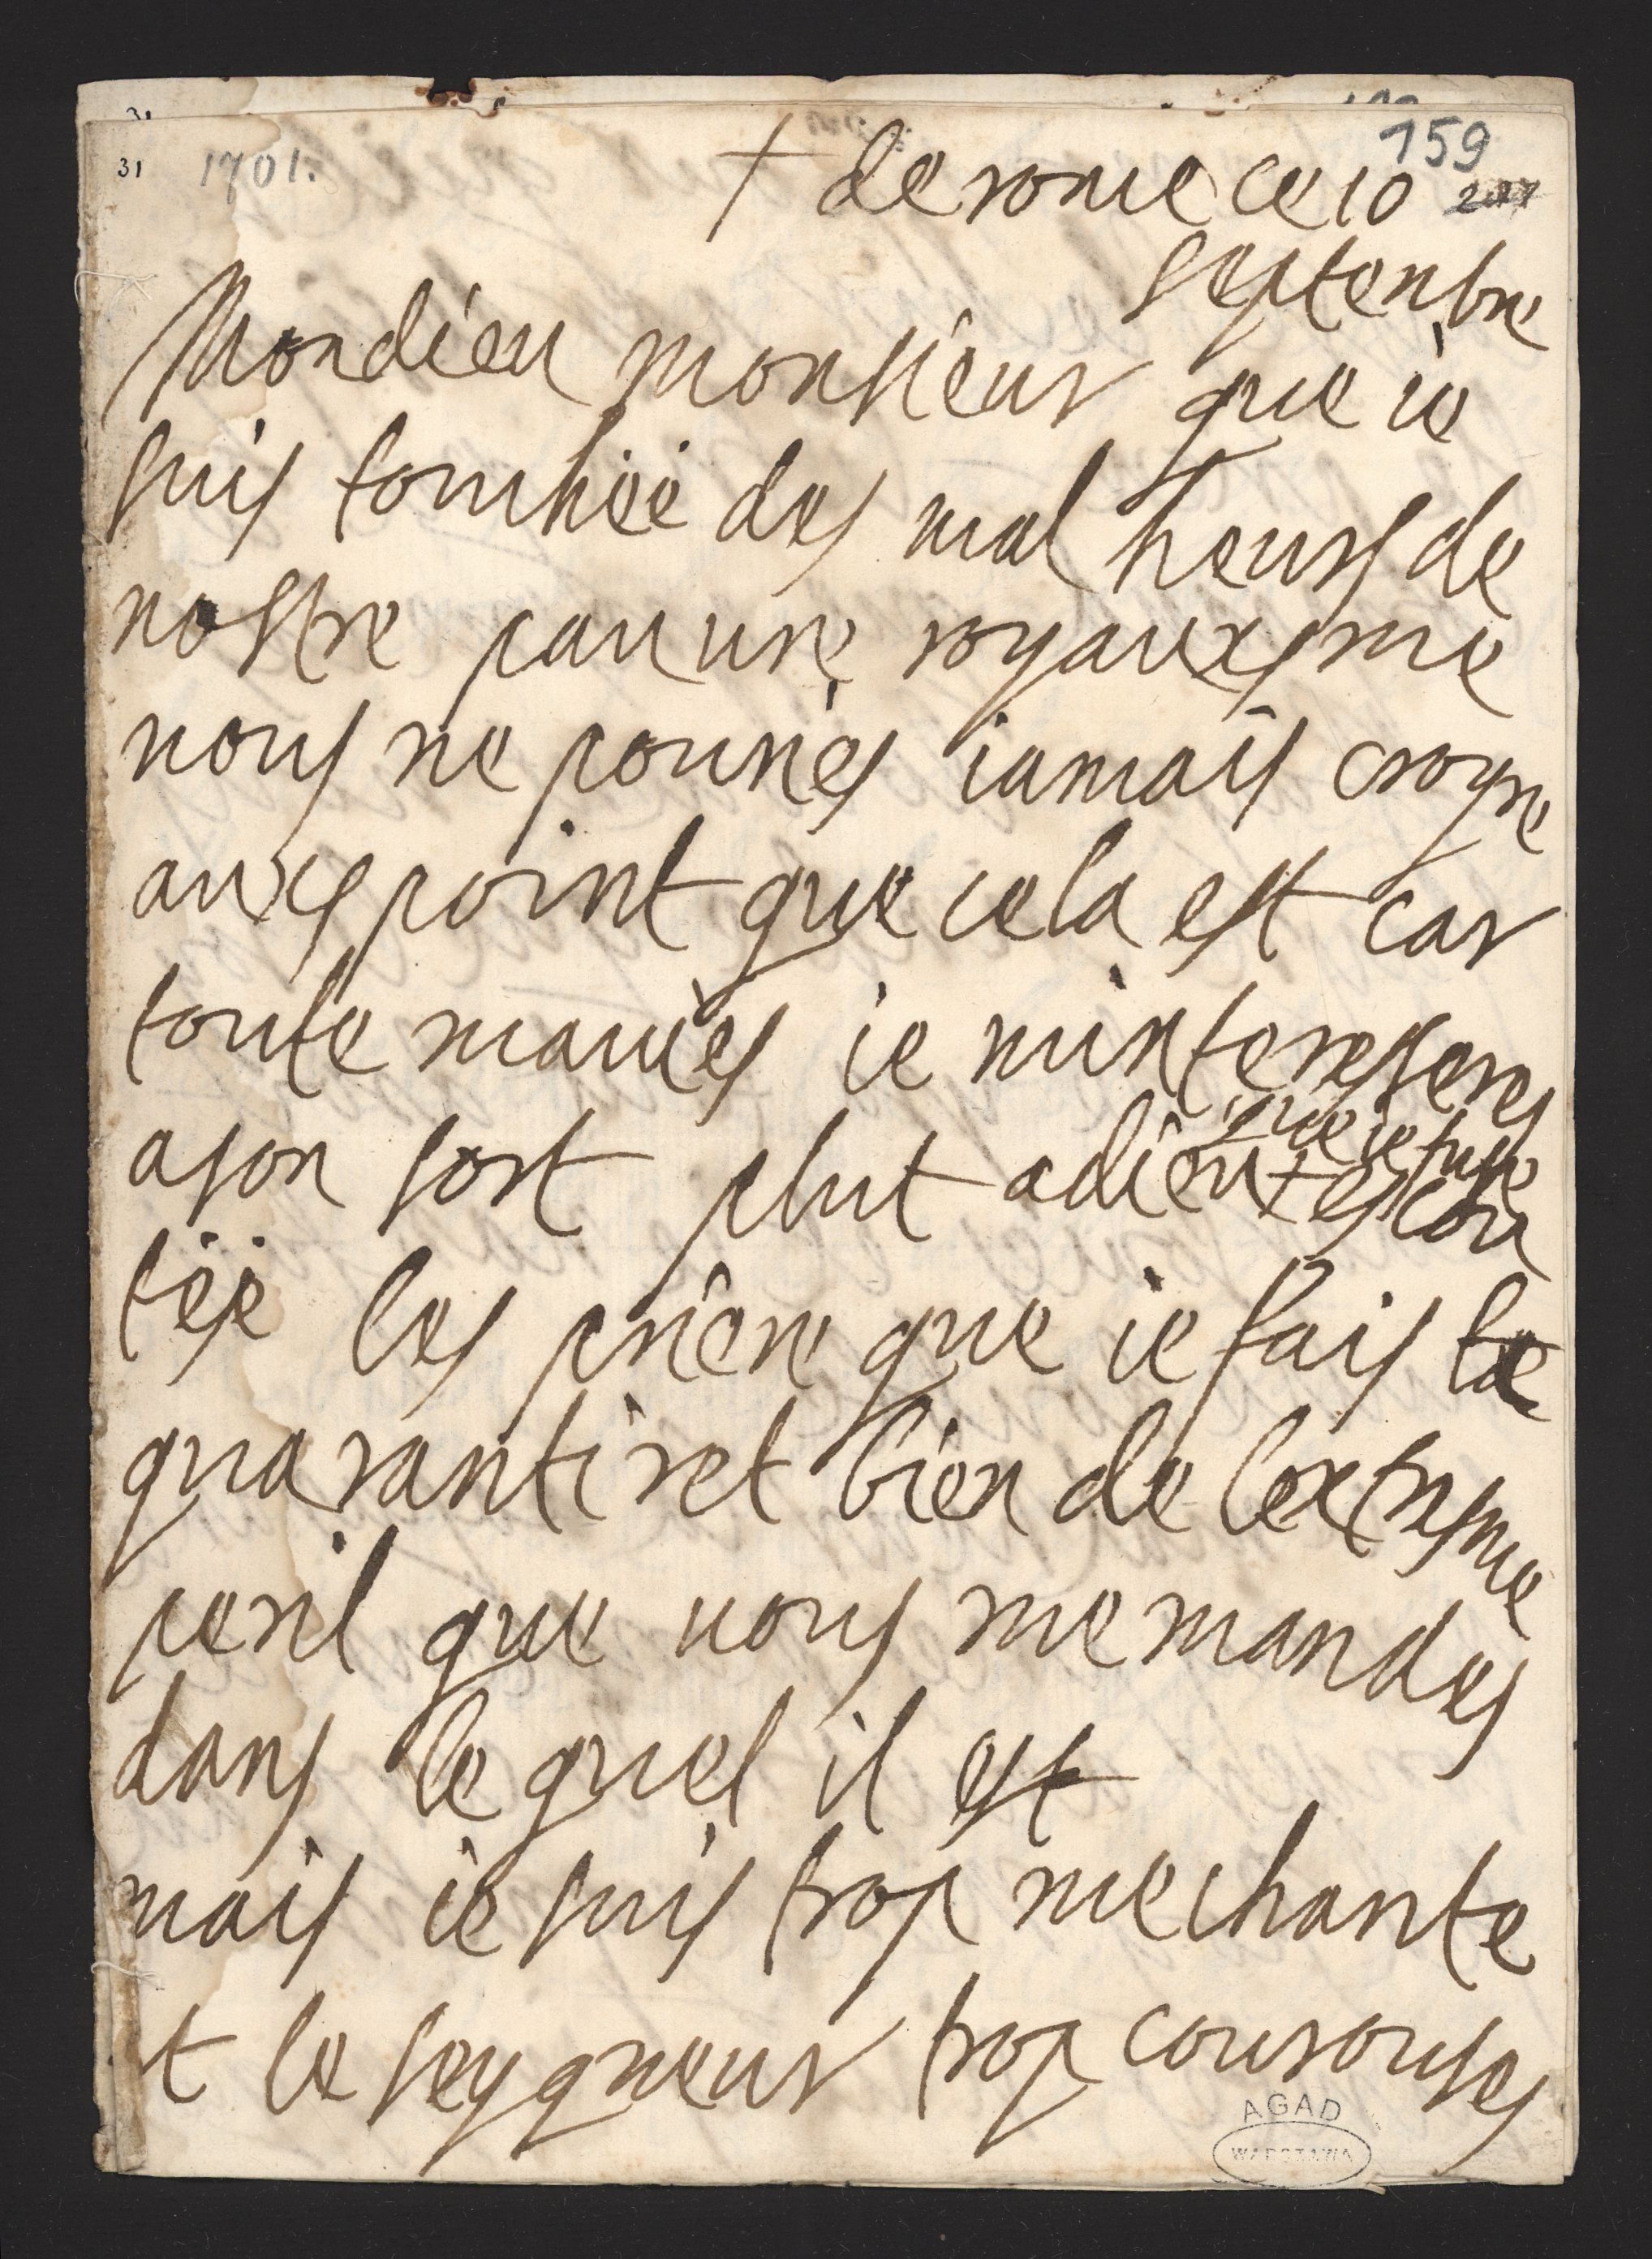 31
31 1701. 159
† de rome ce 10 207
septenbre
Mondieu monsieur que ie
suis touchéé des mal heurs de
nostre pauure royauxsme
vous ne pouriés iamais croyre
auxs point que cela est car
toute mauies ie mintereseres
a son sort plut a dieu que ie fusse
escou
téé les priere que ie fais le
guarantiret bien de lextrsme
peril que vous me mandes
dans le quel il est
mais ie suis trop mechante
et le seygneur trop courouses
AGAD
WARSZAWA